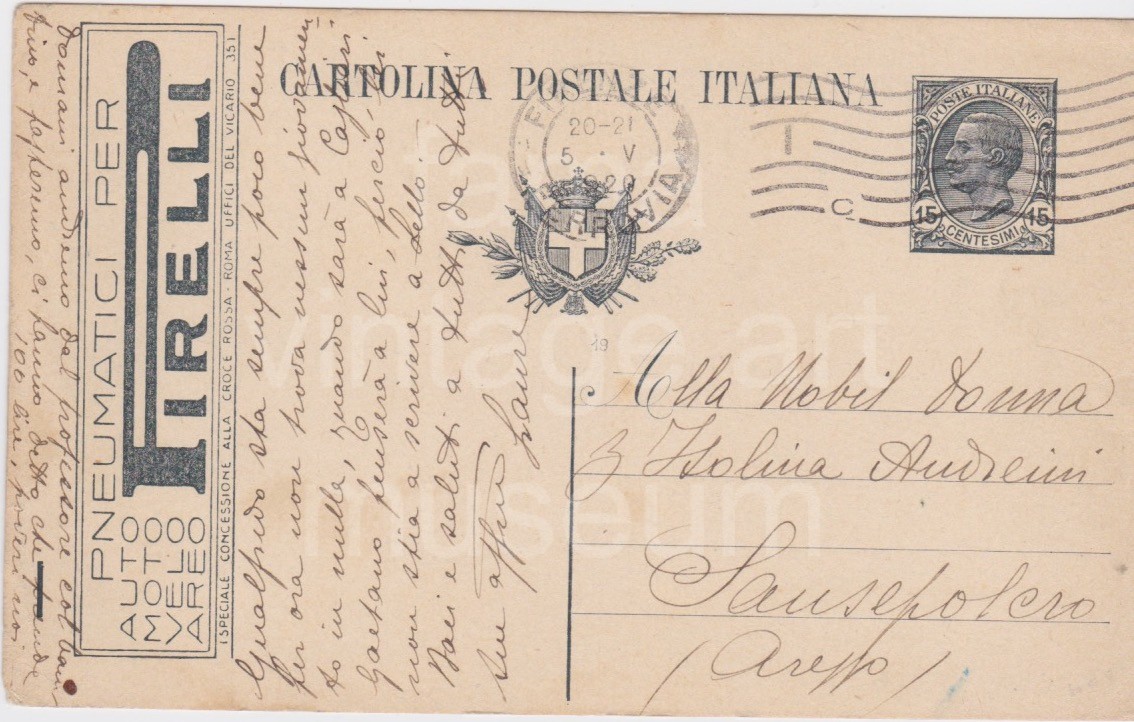 CARTOLINA POSTALE ITALIANA
POSTE ITALIANE
15 15
CENTESIMI
20-21
5 . V
FERROVIA
C.
19
PNEUMATICI PER
PIRELLI
AUTO
MOTO
VELO
AREO
(SPECIALE CONCESSIONE ALLA CROCE ROSSA - ROMA UFFICI DEL VICARIO 35)
Gualfredo sta sempre poco bene
per ora non trova nessun giovamen
to in nulla, quando sarà a Capri
Gaetano penserà a lui, perciò, lei
non stia a scrivere a
Baci e saluti a tutti, da tutti
sua affma Laura
Domani andremo dal professore col bam
bino, e passeremo, ci hanno detto che
100 lire, poveri noi
Alla Nobil Donna
Isolina Andreini
Sansepolcro
(Arezzo)
fama
vintage art
museum